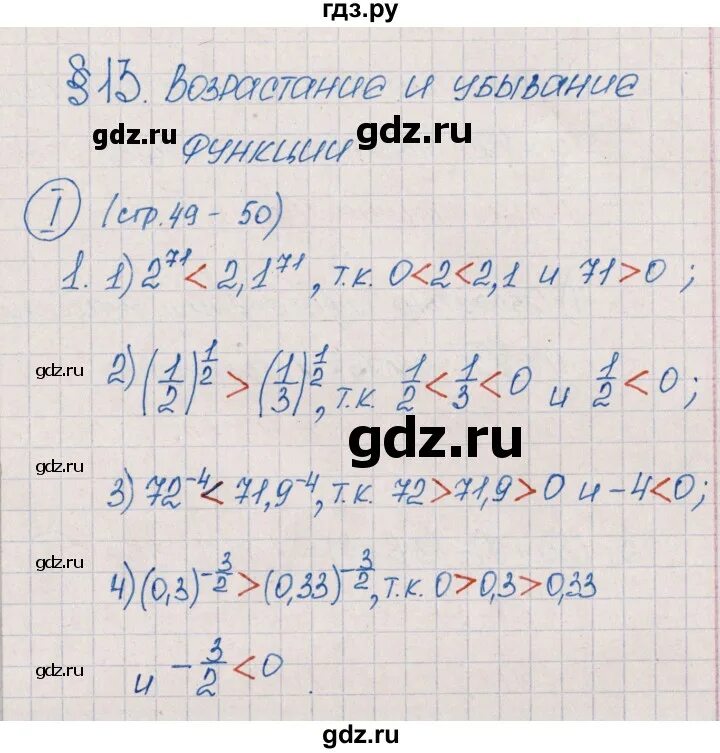 гдз.ру
§13. Возрастание и убывание
gdz.ru функции gdz.ru
I (стр. 49 - 50)
1. 1) 2^71 < 2,1^71, т.к. 0<2<2,1 и 71>0;
gdz.ru
2) (1/2)^(1/2) > (1/3)^(1/2), т.к. 1/2 < 1/3 < 0 и 1/2 < 0;
gdz.ru
gdz.ru
3) 72^-4 < 71,9^-4, т.к. 72>71,9>0 и -4<0;
gdz.ru
4) (0,3)^(-3/2) > (0,33)^(-3/2), т.к. 0>0,3>0,33
gdz.ru
и -3/2 < 0.
gdz.ru